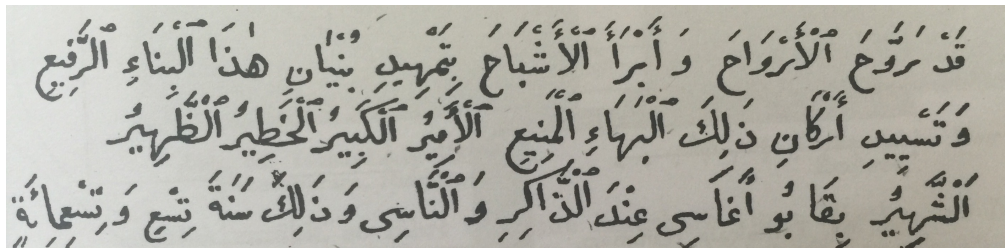 قَدْ رَوَّحَ ٱلْأَرْوَاحَ وَ أَبْرَأَ ٱلْأَشْبَاحَ بِتَمْهِيدِ بُنْيَانِ هٰذَا ٱلْبِنَاءِ ٱلرَّفِيعِ
وَ تَشْيِيدِ أَرْكَانِ ذَلِكَ ٱلْبَهَاءِ ٱلْمَنِيعِ ٱلْأَمِيرُ ٱلْكَبِيرُ ٱلْخَطِيرُ ٱلظَّهِيرُ
ٱلشَّهِيرُ بِقَا بُو أَغَاسِى عِنْدَ ٱلذَّاكِرِ وَ ٱلنَّاسِى وَ ذَلِكَ سَنَةَ تِسْعِ وَ تِسْعِمِائَةٍ